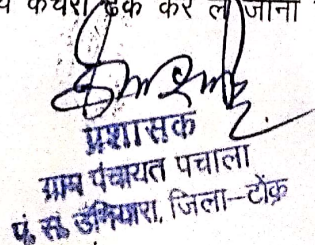 कचरा ढक कर ले जाना
प्रशासक
ग्राम पंचायत पचाला
पं. स. उनियारा, जिला-टोंक